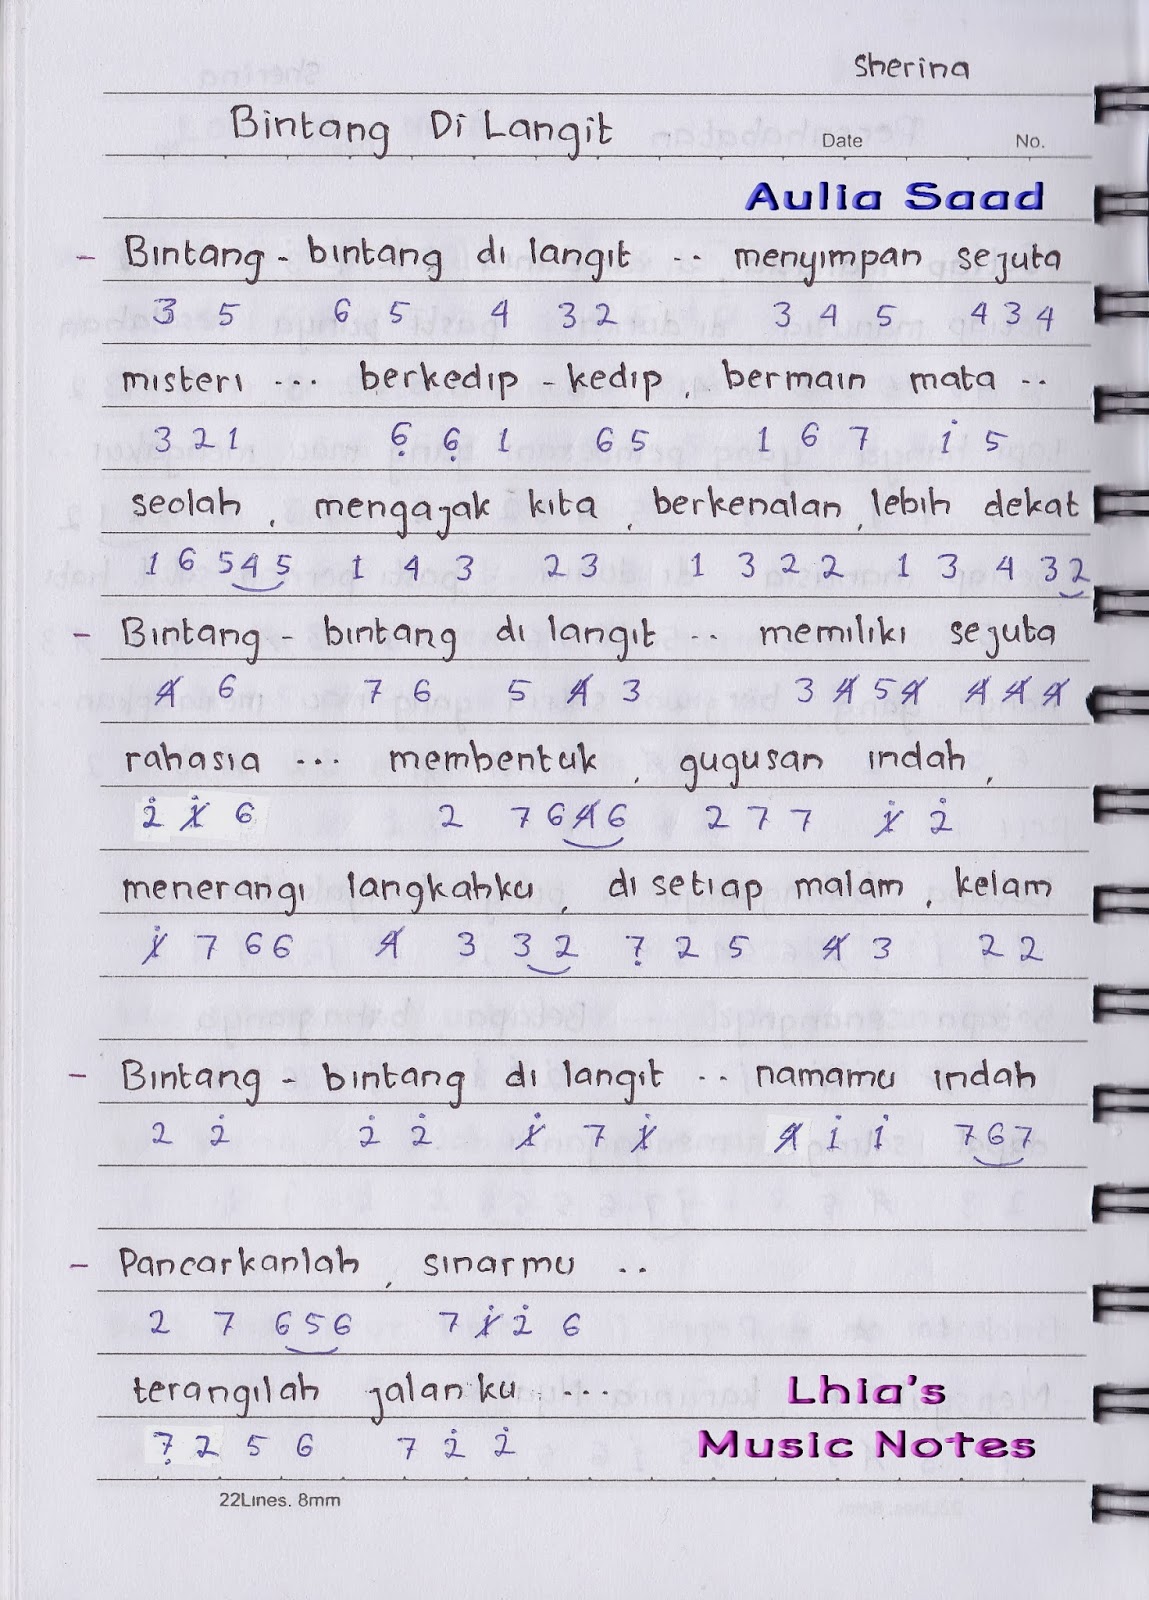 Sherina
Bintang Di Langit
Date No.
Aulia Saad
- Bintang - bintang di langit .. menyimpan sejuta
3 5 6 5 4 3 2 3 4 5 4 3 4
misteri ... berkedip - kedip, bermain mata ..
3 2 1 6̣ 6̣ 1 6 5 1 6 7 1̇ 5
seolah, mengajak kita, berkenalan, lebih dekat
1 6 5 4 5 1 4 3 2 3 1 3 2 2 1 3 4 3 2
- Bintang - bintang di langit .. memiliki sejuta
4̸ 6 7 6 5 4̸ 3 3 4̸ 5 4̸ 4̸ 4̸ 4̸
rahasia ... membentuk, gugusan indah,
2̇ 1̸̇ 6 2 7 6 4̸ 6 2 7 7 1̸̇ 2̇
menerangi langkahku, di setiap malam, kelam
1̸̇ 7 6 6 4̸ 3 3 2 7̣ 2 5 4̸ 3 2 2
- Bintang - bintang di langit .. namamu indah
2 2̇ 2̇ 2̇ 1̸̇ 7 1̸̇ 4̸ 1̇ 1̇ 7 6 7
- Pancarkanlah, sinarmu ..
2 7 6 5 6 7 1̸̇ 2̇ 6
terangilah jalanku ....
7̣ 2 5 6 7 2̇ 2̇
Lhia's
Music Notes
22Lines. 8mm